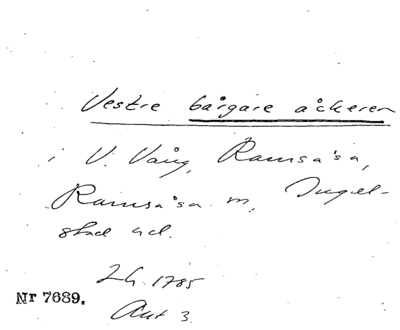 Vestre bårgare åckeren
i V. Vång, Ramsåsa,
Ramsåsa sn, Ingel-
stad hd.
LA 1785
Nr 7689.
Akt 3.